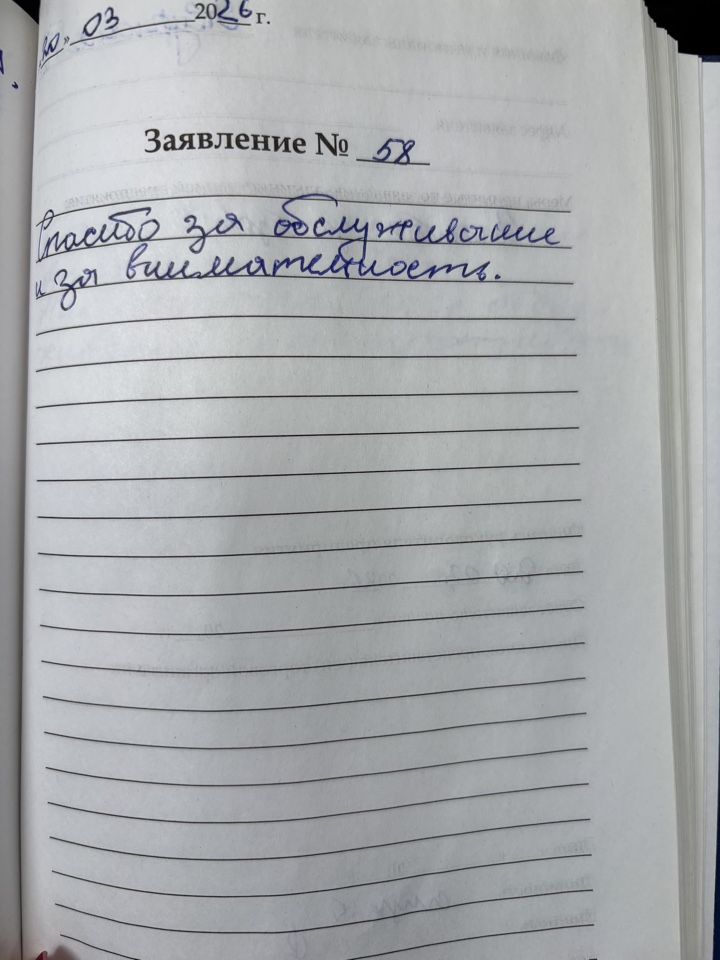 20» 03 2026 г.
Заявление № 58
Спасибо за обслуживание
и за внимательность.